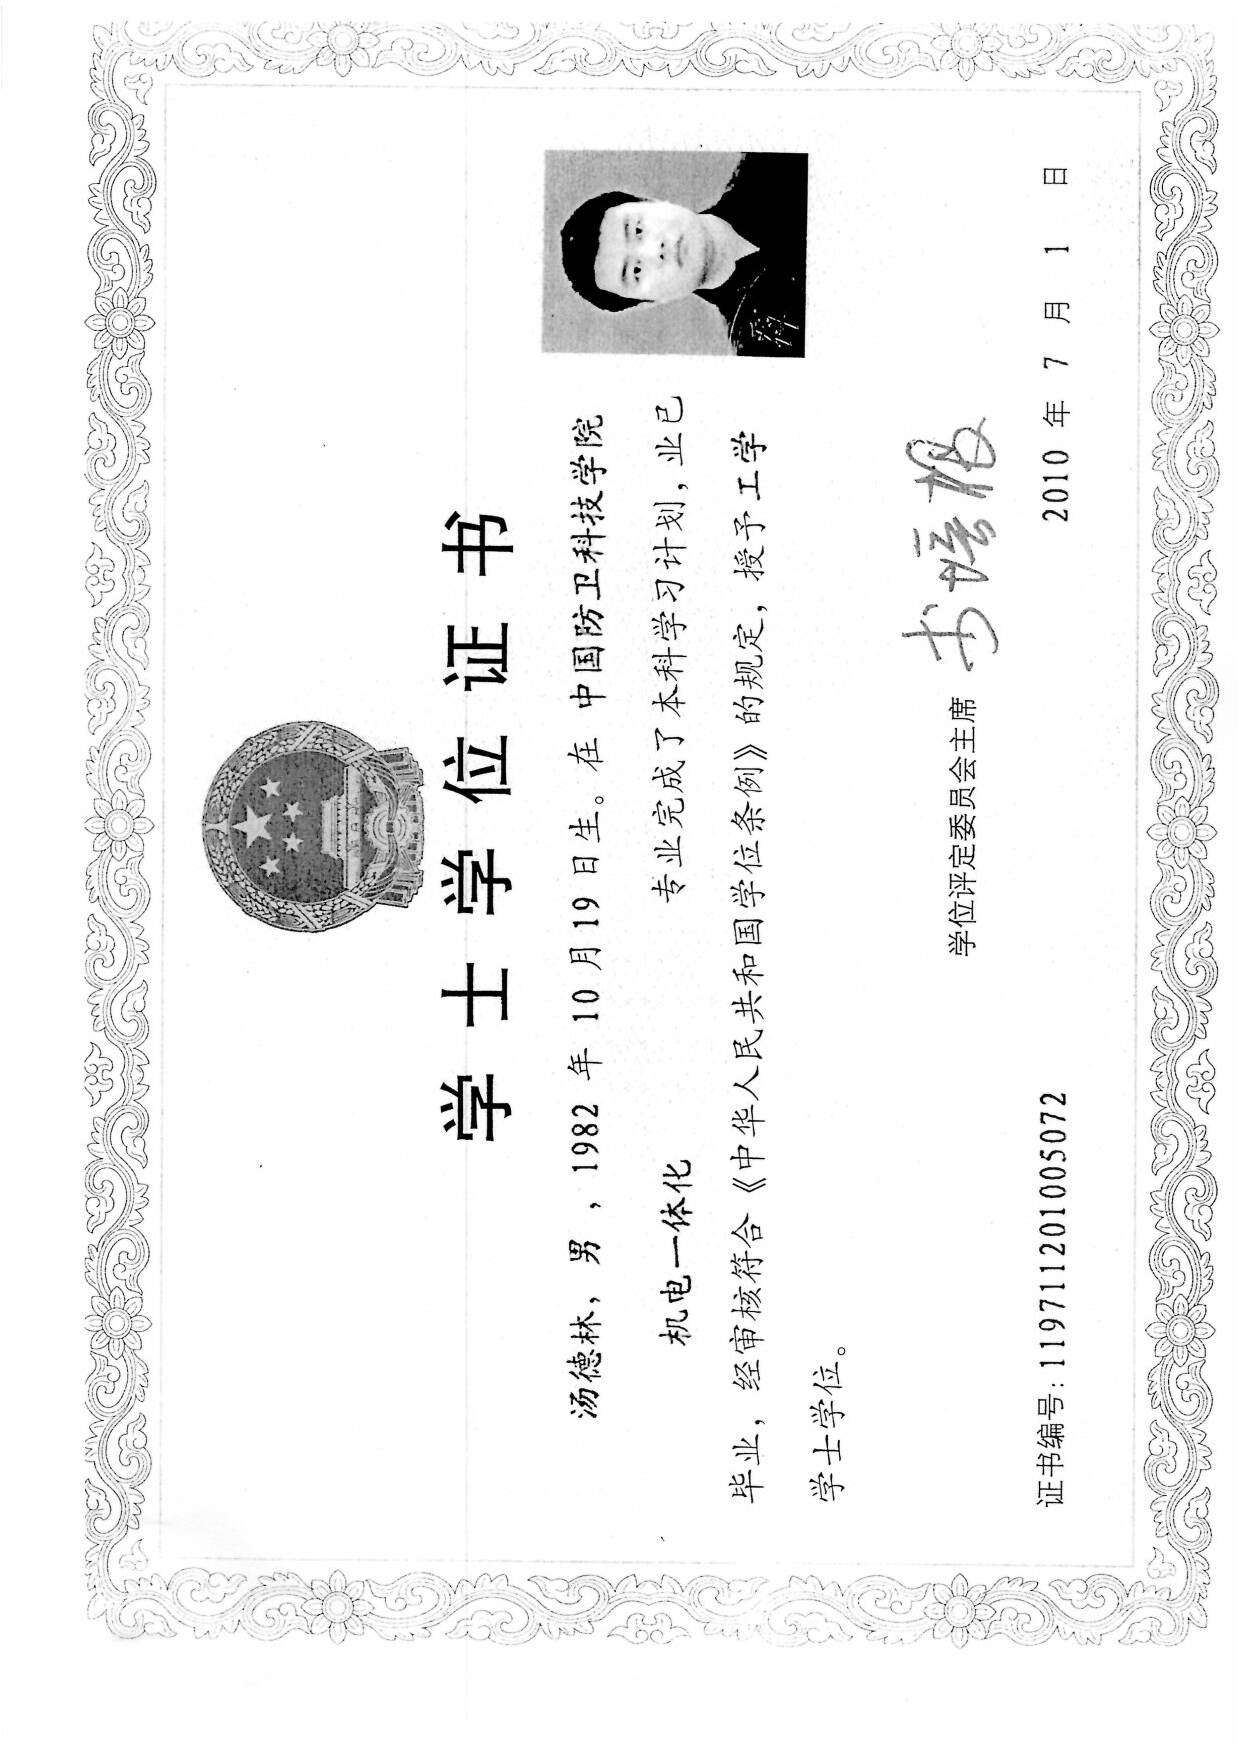 学士学位证书
汤德林，男，1982 年 10 月 19 日生。在 中国防卫科技学院
机电一体化 专业完成了本科学习计划，业已
毕业，经审核符合《中华人民共和国学位条例》的规定，授予 工学
学士学位。
学位评定委员会主席
证书编号：119711201005072
2010 年 7 月 1 日